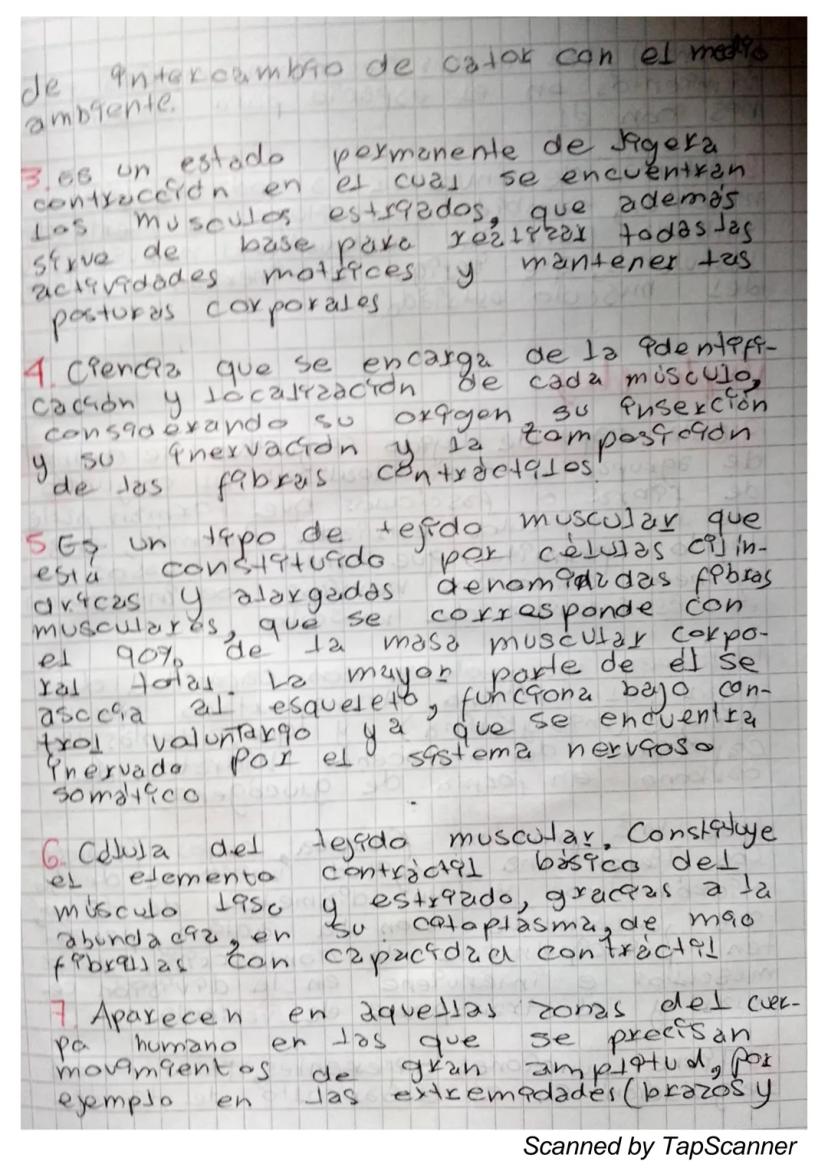 de intercambio de calor con el medio
ambiente.
3. es un estado permanente de ligera
contracción en el cual se encuentran
los musculos estriados, que además
sirve de base para realizar todas las
actividades motrices y mantener las
posturas corporales
4. Ciencia que se encarga de la identifi-
cación y localización de cada músculo,
considerando su origen su inserción
y su inervación y la composición
de las fibras contráctiles.
5 Es un tipo de tejido muscular que
está constituido por células cilín-
dricas y alargadas denominadas fibras
musculares, que se corresponde con
el 90% de la masa muscular corpo-
ral total. La mayor parte de él se
asocia al esqueleto, funciona bajo con-
trol voluntario ya que se encuentra
inervado por el sistema nervioso
somático
6. Célula del tejido muscular. Constituye
el elemento contráctil básico del
músculo liso y estriado, gracias a la
abundacia, en su citoplasma, de mio
fibrillas con capacidad contráctil
7. Aparecen en aquellas zonas del cuer-
po humano en las que se precisan
movimientos de gran amplitud, por
ejemplo en las extremidades (brazos y
Scanned by TapScanner